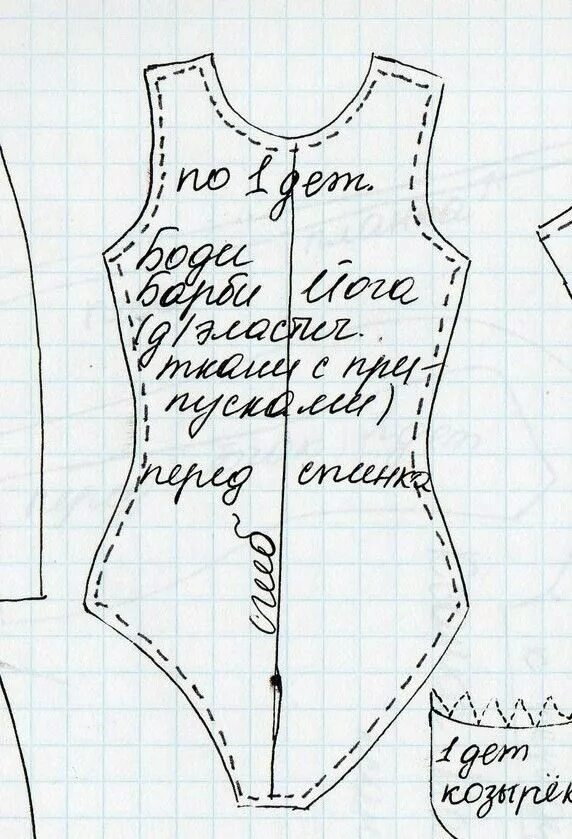 по 1 дет.
Боди
Барби Йога
(д/эластич.
ткани с при-
пусками)
перед спинка
сгиб
1 дет
козырёк